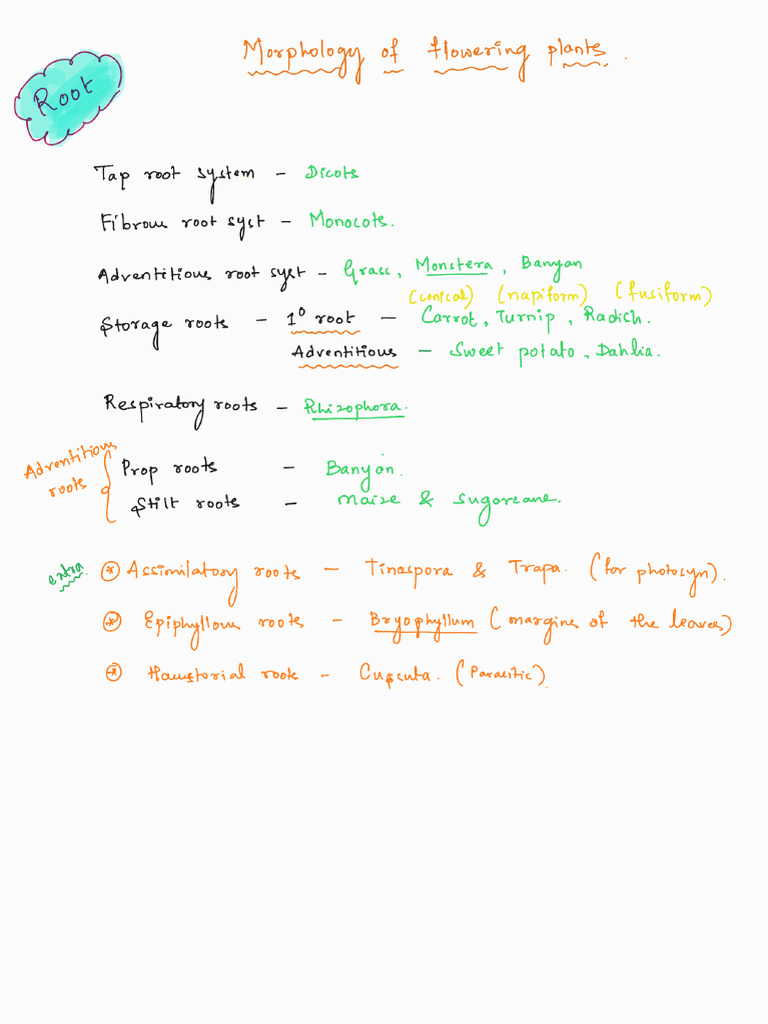 Morphology of flowering plants.
Root
Tap root system - Dicots
Fibrous root syst - Monocots.
Adventitious root syst - Grass, Monstera, Banyan
(conical) (napiform) (fusiform)
Storage roots - 1° root - Carrot, Turnip, Radich.
Adventitious - Sweet potato, Dahlia.
Respiratory roots - Rhizophora.
Adventitious roots
Prop roots - Banyan.
Stilt roots - Maize & sugarcane.
extra
* Assimilatory roots - Tinaspora & Trapa. (for photosyn).
* Epiphyllous roots - Bryophyllum (margins of the leaves)
* Haustorial roots - Cuscuta. (Parasitic).